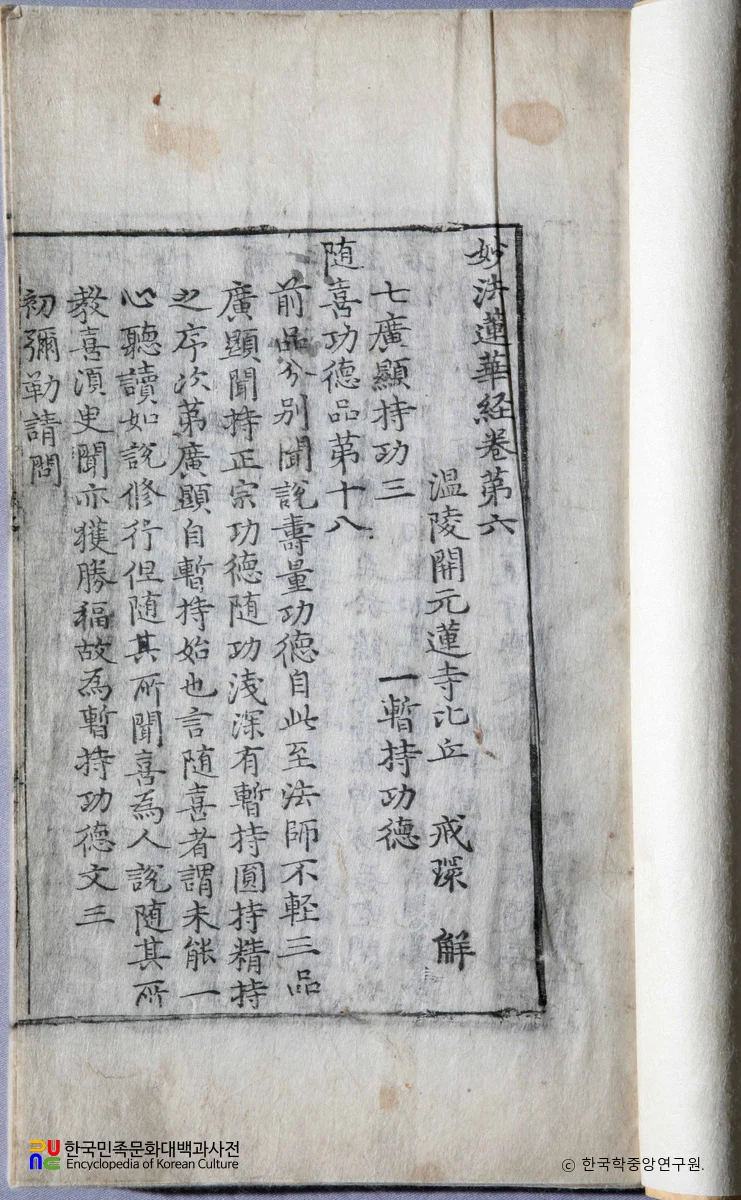 妙法蓮華経卷第六
温陵開元蓮寺比丘 戒環 解
七廣顯持功三 一暫持功德
随喜功德品第十八
前品分别聞說壽量功德自此至法師不輕三品
廣顯聞持正宗功德随功淺深有暫持圓持精持
之序次第廣顯自暫持始也言随喜者謂未能一
心聽讀如說修行但随其所聞喜為人說随其所
教喜湏臾聞亦獲勝福故為暫持功德文三
初彌勒請問
한국민족문화대백과사전
Encyclopedia of Korean Culture
ⓒ 한국학중앙연구원.